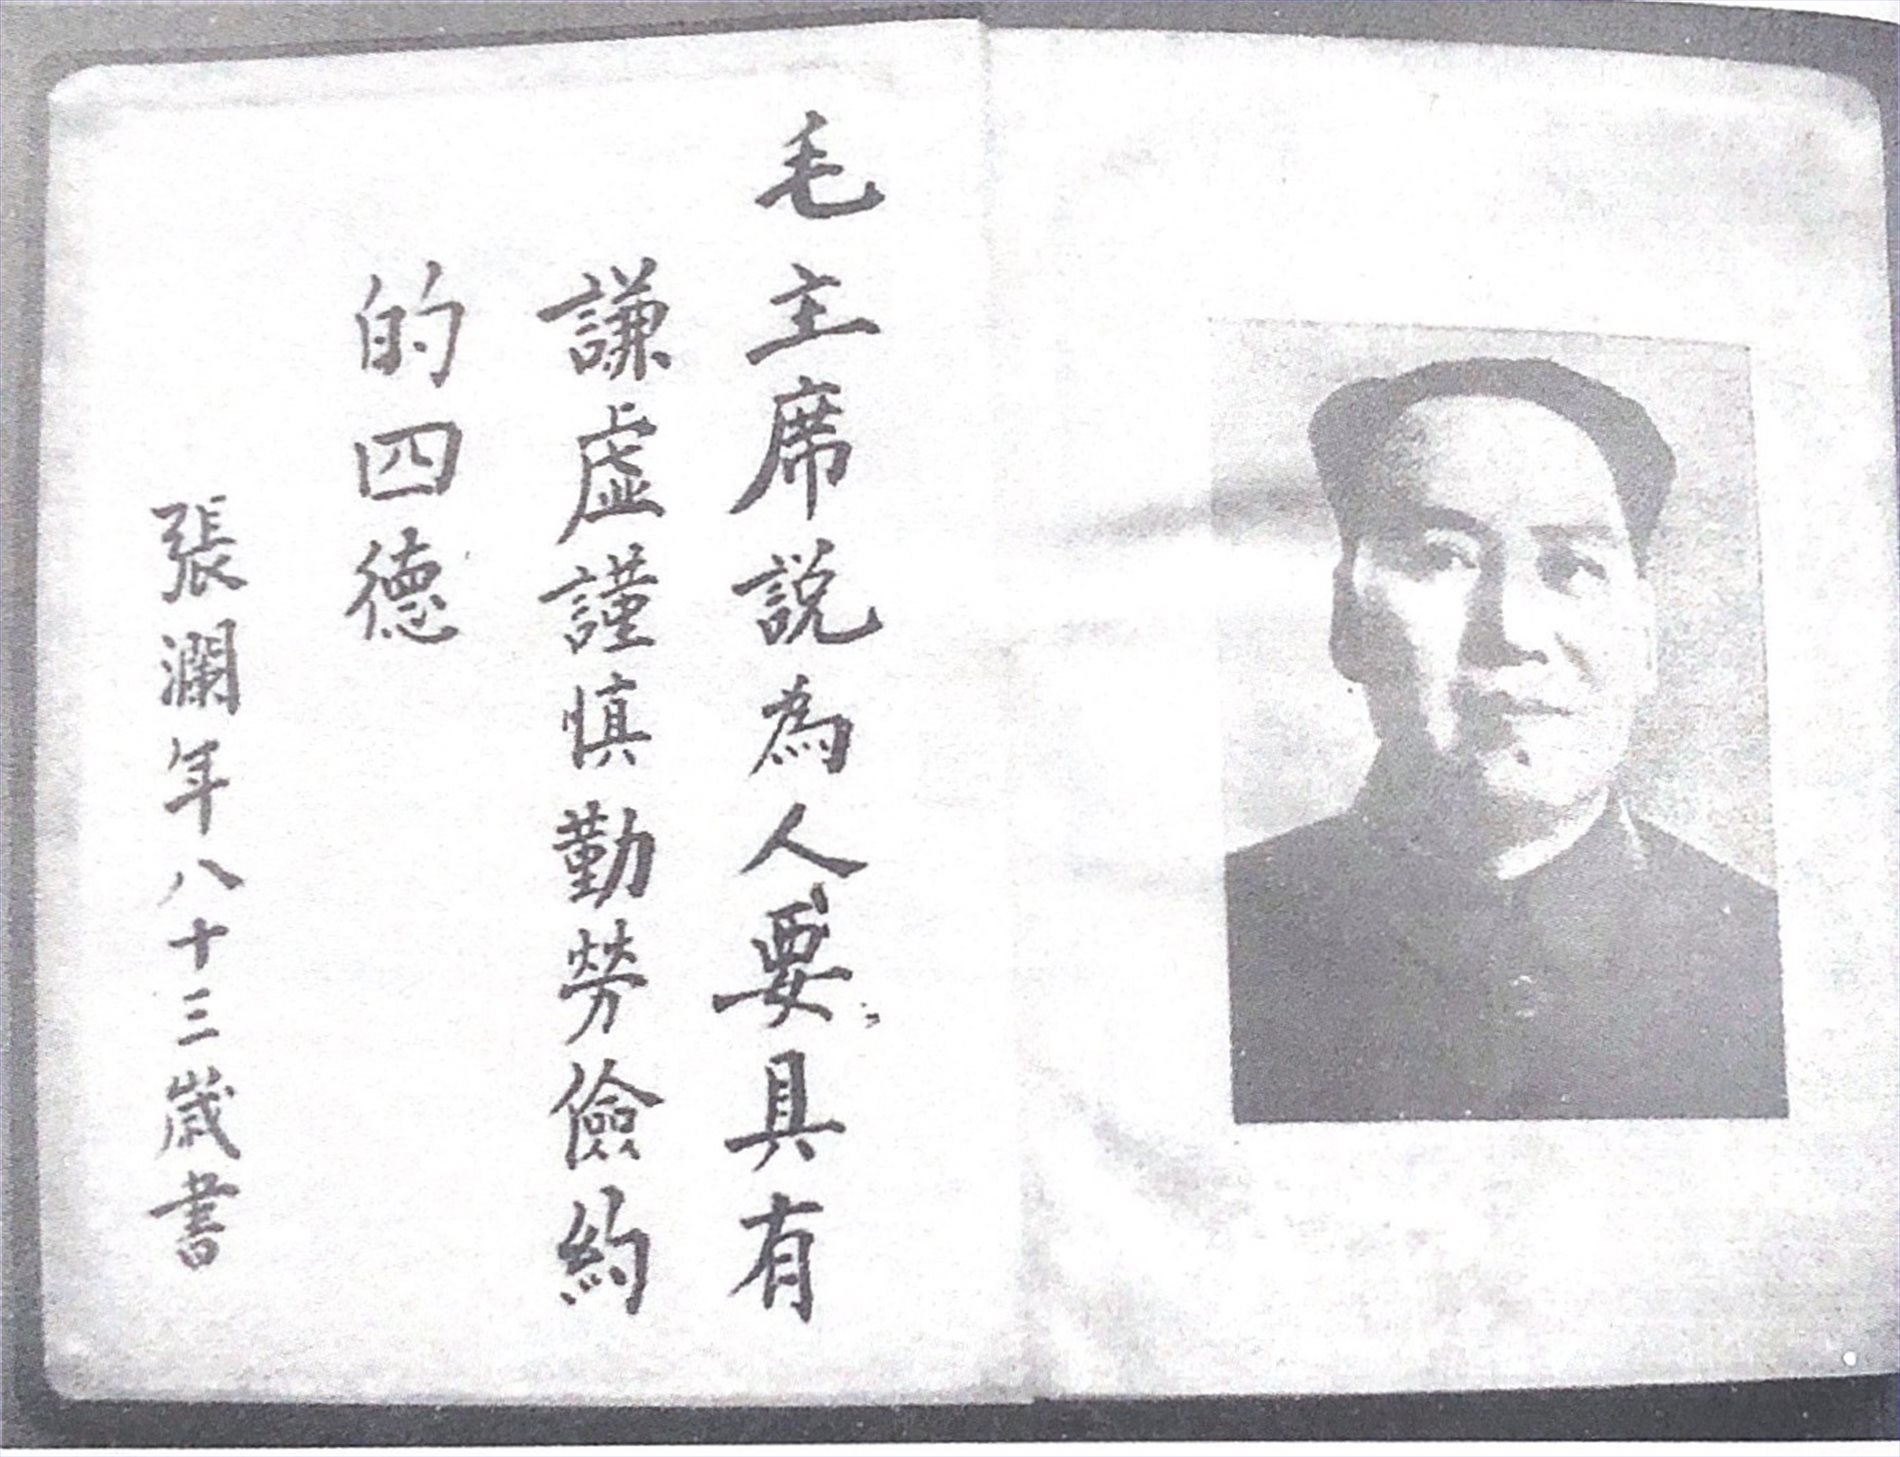 毛主席説為人要具有
謙虛謹慎勤勞儉約
的四德
張瀾年八十三歲書